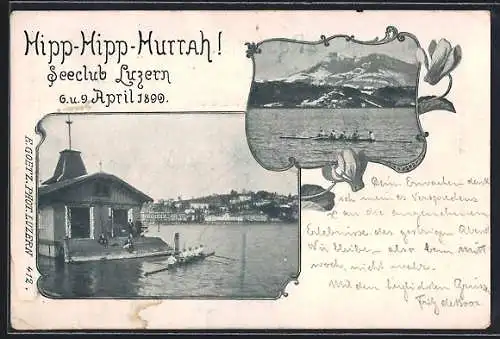 Hipp-Hipp-Hurrah!
Seeclub Luzern
6. u. 9. April 1899.
E. GOETZ, PHOT. LUZERN 412.
Beim Erwachen denk
ich an mein Versprechen
& an die angenehmen
Erlebnisse des gestrigen Abend
Wir bleiben also beim Mitt
woch, nicht mehr.
Mit den herzlichsten Grüsse
Fritz